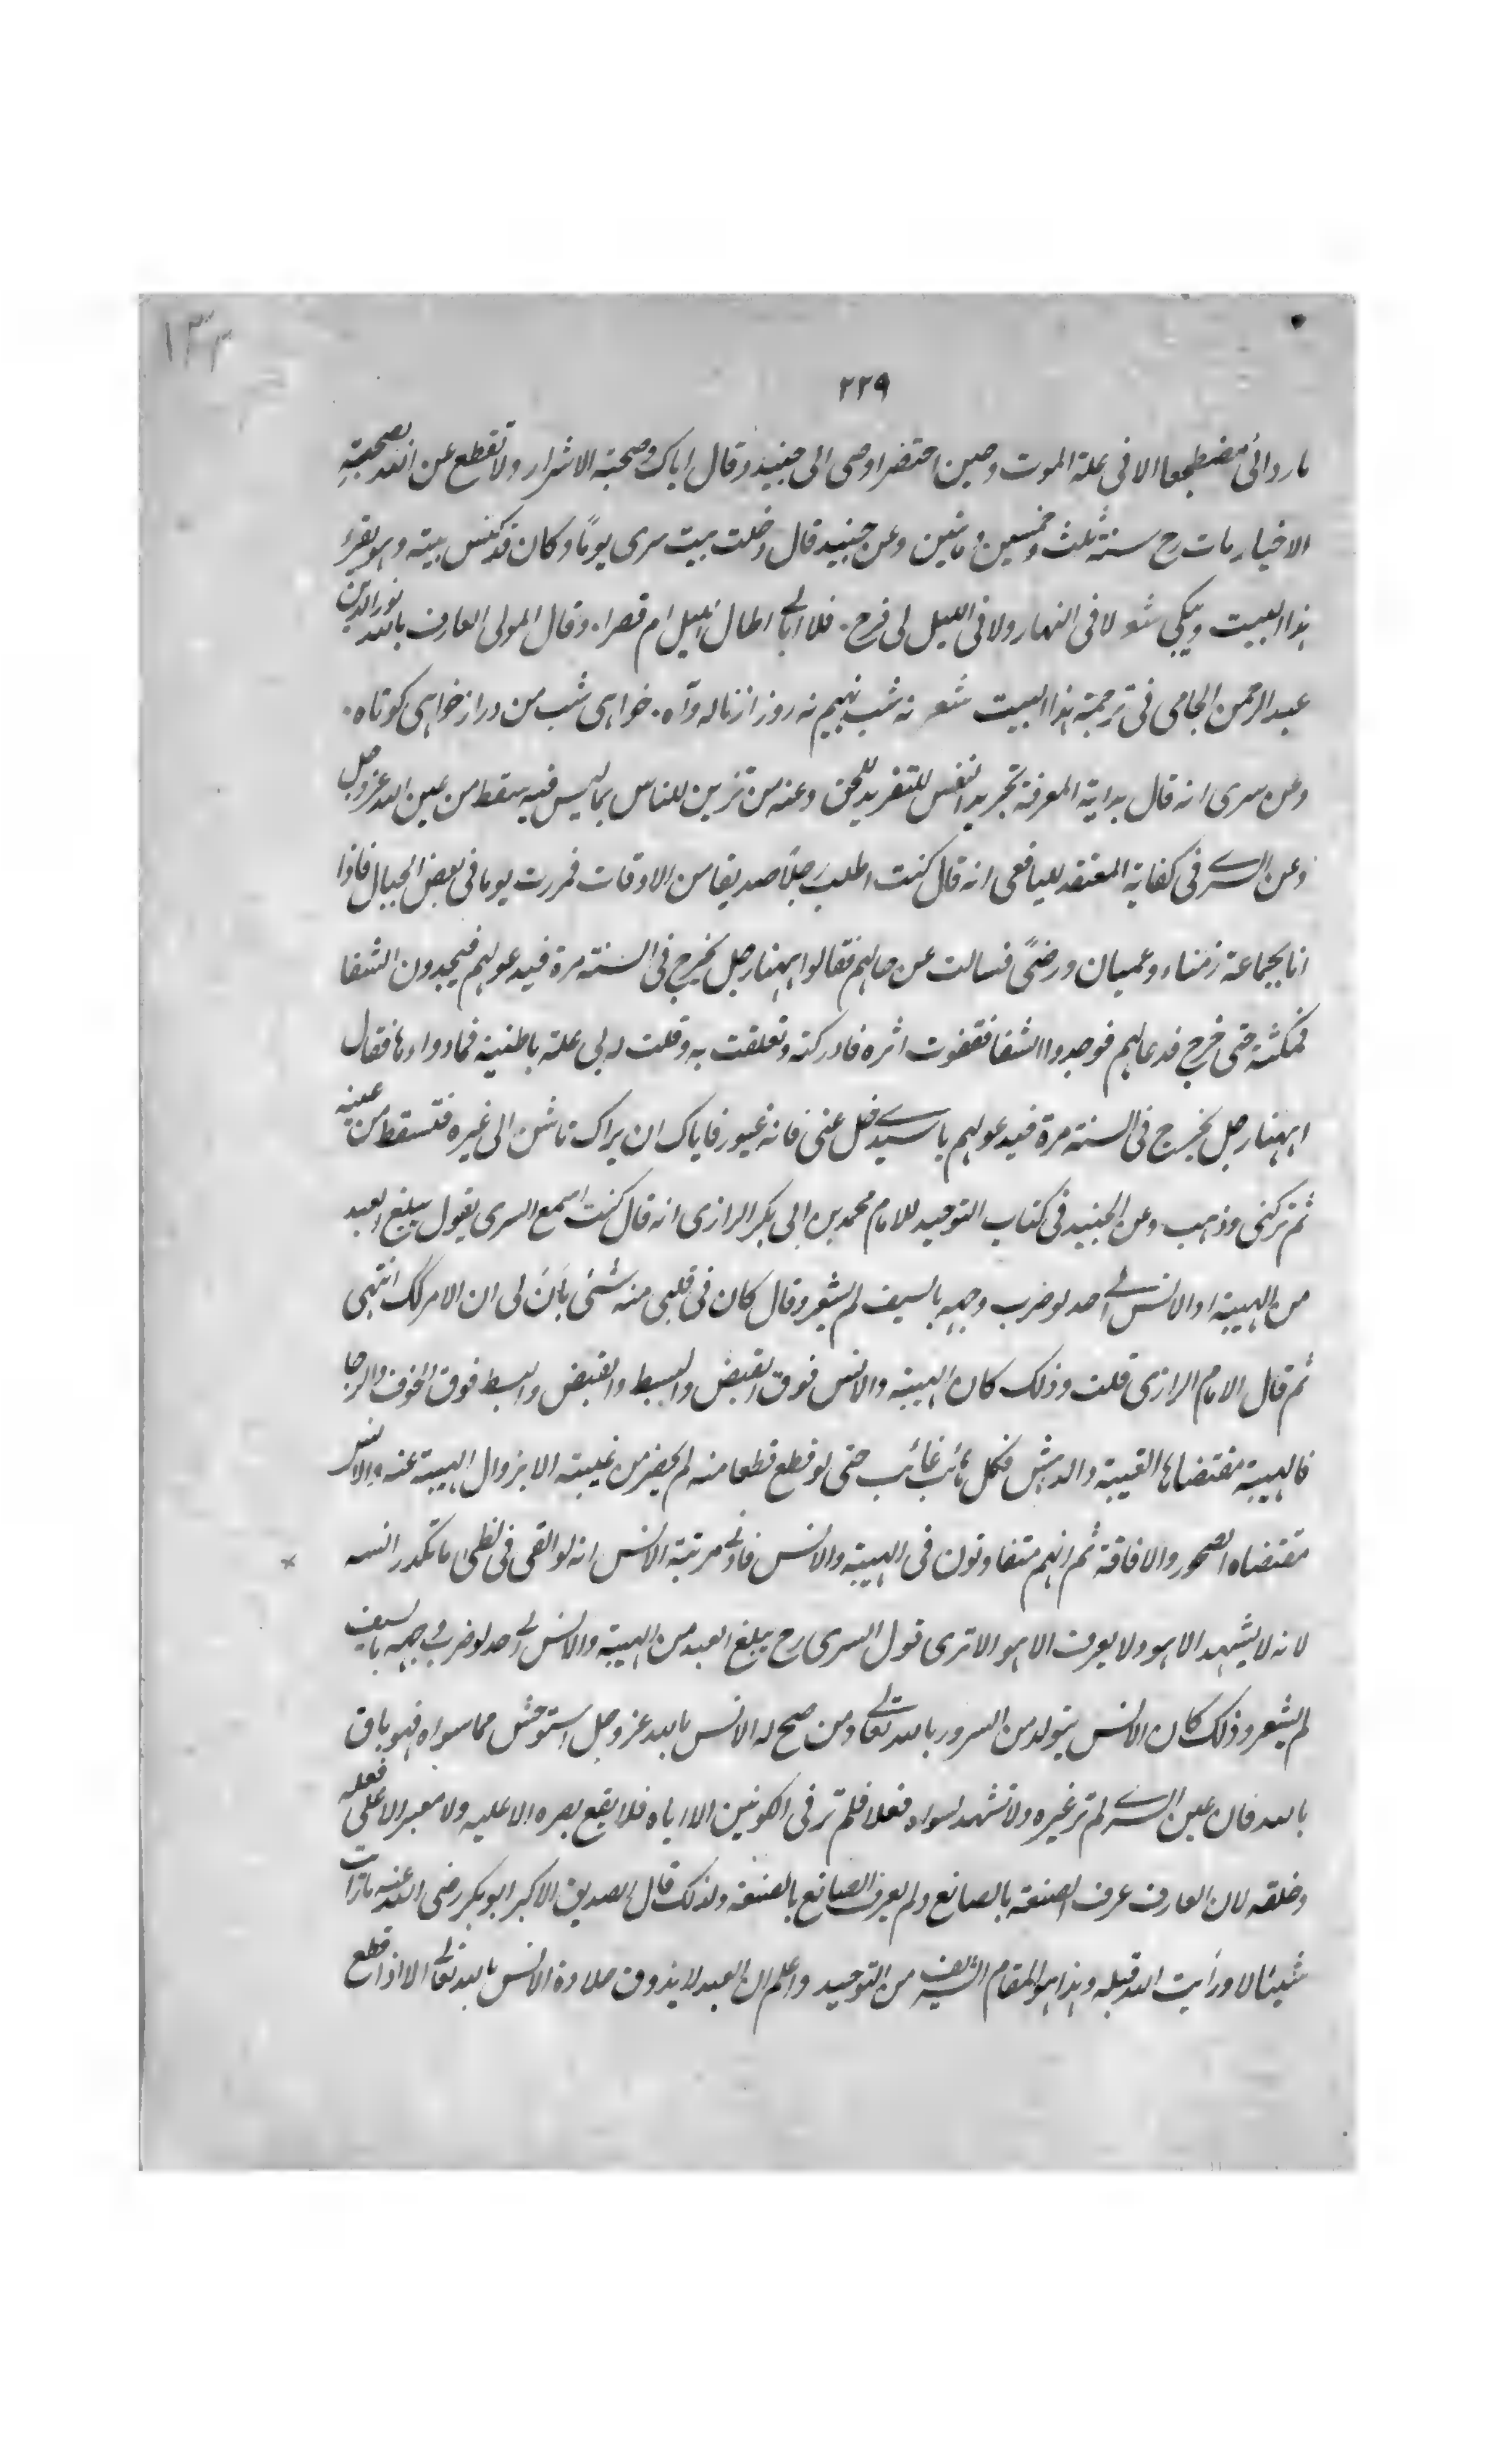 ١٣٣
٢٢٩
ما روائى مضطجعا الا فى علة الموت وحين احتضر اوصى الى جنيد وقال اياك وصحبة الاشرار ولا تقطع عن الله بصحبة
الاخيار مات رح سنة ثلث وخمسين ومائتين وعن جنيد قال دخلت بيت سرى يوماً وكان قد كنس بيته وهو يقرء
هذا البيت ويبكى شعر لا فى النهار ولا فى الليل لى فرح ۰ فلا ابالى اطال الليل ام قصرا ۰ وقال المولى العارف بالله نور الدين
عبد الرحمن الجامى فى ترجمة هذا البيت شعر نه شب نهيم نه روز از ناله وآه ۰ خواهى شب من دراز خواهى كوتاه ۰
وعن سرى انه قال بداية المعرفة تجريد النفس للتفريد للحق وعنه من تزين للناس بما ليس فيه سقط من عين الله عز وجل
وعن السرى فى كفاية المعتقد لليافعى انه قال كنت اطلب رجلاً صديقا من الاوقات فمررت يوما فى بعض الجبال فاذا
انا بجماعة زمناء وعميان ورضىً فسالت عن حالهم فقالوا ههنا رجل يخرج فى السنة مرة فيدعو لهم فيجدون الشفا
فمكثت حتى خرج فدعا لهم فوجدوا الشفا فقفوت اثره فادركته وتعلقت به وقلت له بى علة باطنية فما دواءها فقال
ههنا رجل يخرج فى السنة مرة فيدعو لهم يا سيدى خل عنى فانه غيور فاياك ان يراك تانس الى غيره فتسقط من عينه
ثم تركنى وذهب وعن الجنيد فى كتاب التوحيد للامام محمد بن ابى بكر الرازى انه قال كنت اسمع السرى يقول يبلغ العبد
من الهيبة او الانس الى حد لو ضرب وجهه بالسيف لم يشعر وقال كان فى قلبى منه شئى بانَ لى ان الامر كذلك انتهى
ثم قال الامام الرازى قلت وذلك كان الهيبة والانس فوق القبض والبسط والقبض والبسط فوق الخوف والرجا
فالهيبة مقتضاها الغيبة والدهش فكل هائب غائب حتى لو قطع قطعا منه لم يحضر من غيبته الا بزوال الهيبة عنه والانس
مقتضاه الصحو والافاقة ثم انهم متفاوتون فى الهيبة والانس فادنى مرتبة الانس انه لو القى فى لظى ما تكدر انسه
لانه لا يشهد الا هو ولا يعرف الا هو الا ترى قول السرى رح يبلغ العبد من الهيبة والانس الى حد لو ضرب وجهه بالسيف
لم يشعر وذلك كان الانس يتولد من السرور بالله تعالى ومن صح له الانس بالله عز وجل استوحش مما سواه فهو باق
بالله فان عين السرى لم تر غيره ولا تشهد لسواه فعلا فلم تر فى الكونين الا اياه فلا يقع بصره الا عليه ولا معبر الا على فعله
وخلقه لان العارف عرف الصنعة بالصانع ولم يعرف الصانع بالصنعة ولذلك قال الصديق الاكبر ابو بكر رضى الله عنه ما رأت
شيئا الا ورأيت الله قبله وهذا هو المقام الشريف من التوحيد واعلم ان العبد لا يذوق حلاوة الانس بالله تعالى الا اذا قطع